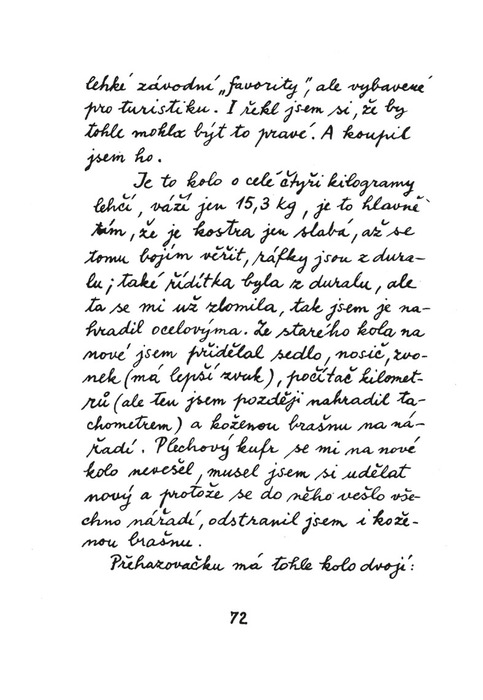 lehké závodní „favority", ale vybavené
pro turistiku. I řekl jsem si, že by
tohle mohla být to pravé. A koupil
jsem ho.
Je to kolo o celé čtyři kilogramy
lehčí, váží jen 15,3 kg, je to hlavně
tím, že je kostra jen slabá, až se
tomu bojím věřit, ráfky jsou z dura-
lu; také řídítka byla z duralu, ale
ta se mi už zlomila, tak jsem je na-
hradil ocelovýma. Ze starého kola na
nové jsem přidělal sedlo, nosič, zvo-
nek (má lepší zvuk), počítač kilomet-
rů (ale ten jsem později nahradil ta-
chometrem) a koženou brašnu na ná-
řadí. Plechový kufr se mi na nové
kolo nevešel, musel jsem si udělat
nový a protože se do něho vešlo vše-
chno nářadí, odstranil jsem i kože-
nou brašnu.
Přehazovačku má tohle kolo dvojí:
72